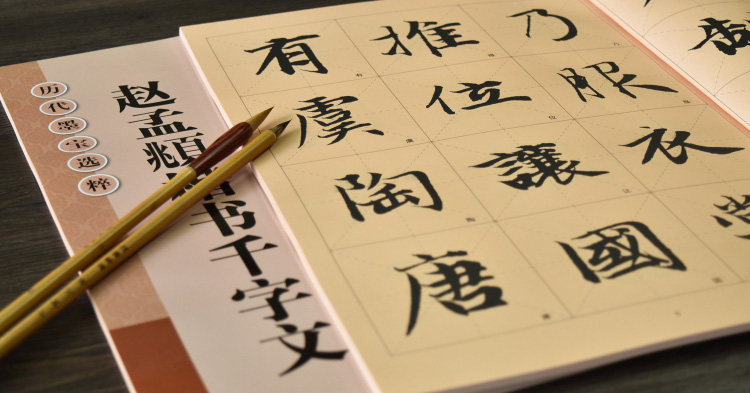 历代墨宝选粹
赵孟頫楷书千字文
乃服衣裳
推位讓國
有虞陶唐